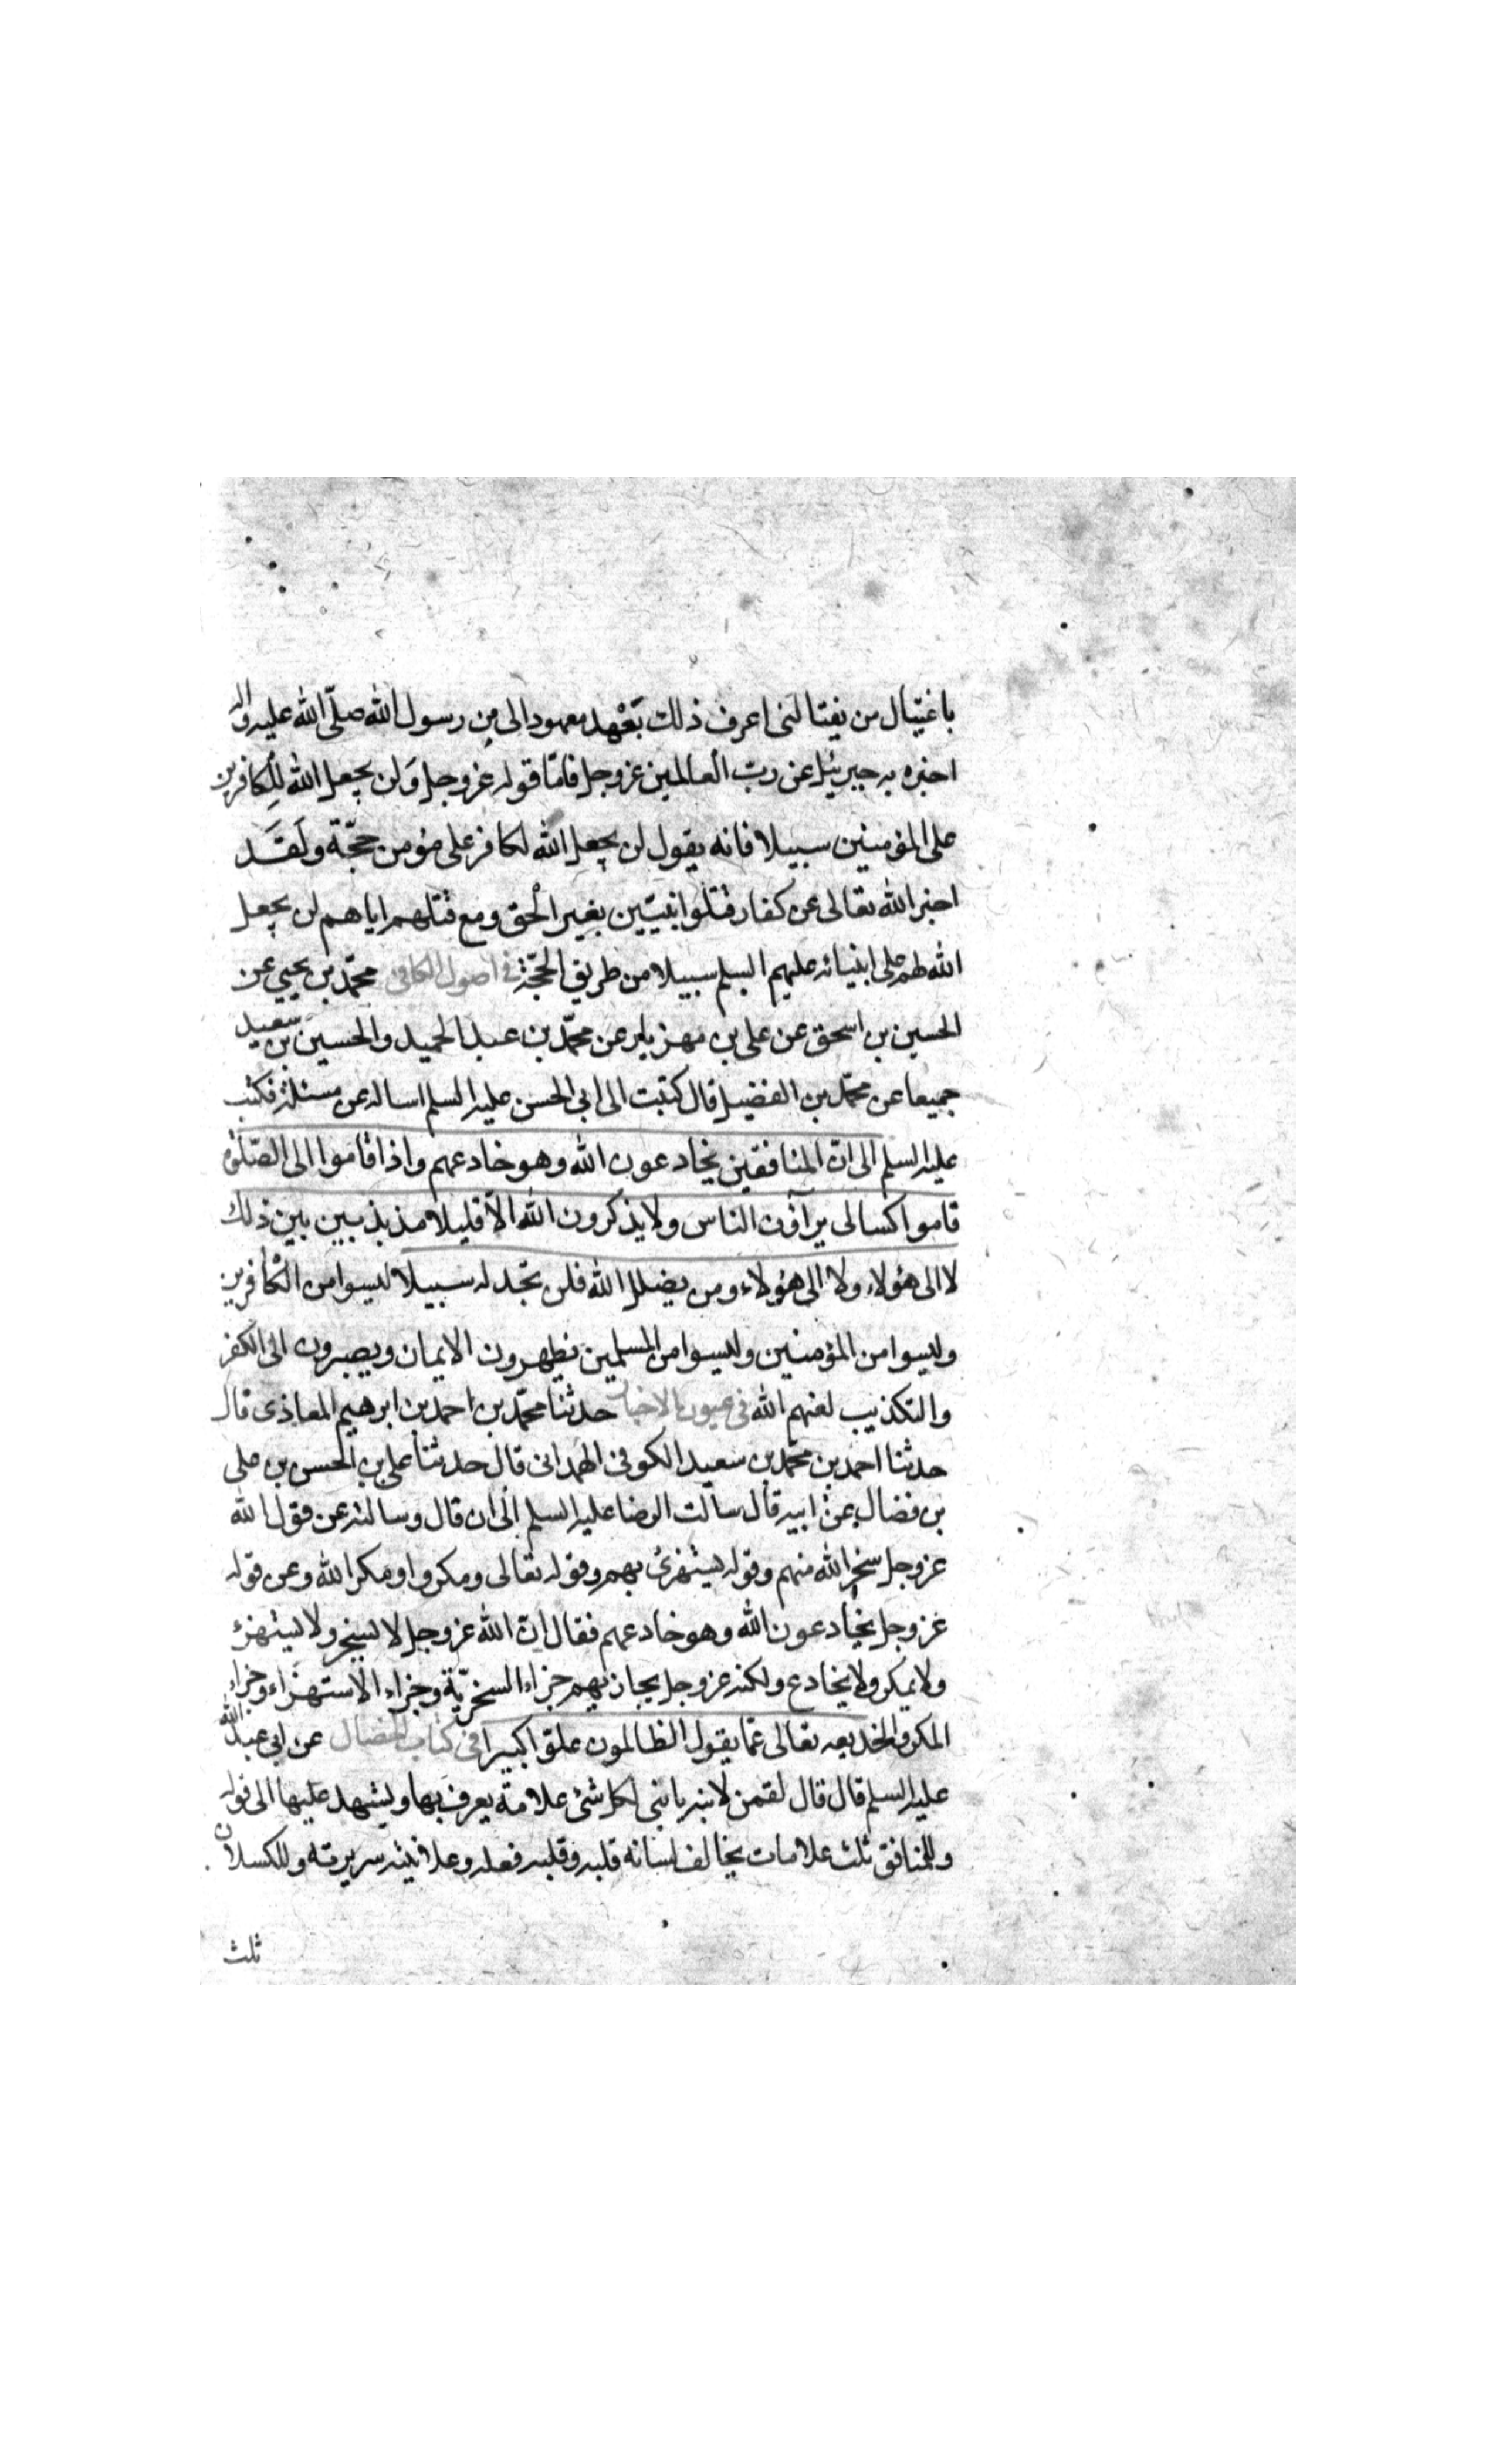 باغتيال من يغتالنى اعرف ذلك بَعْهد معهود الى من رسول الله صلّى الله عليه واله
اخبره به جبرئيل عن ربّ العالمين عزوجل فامّا قوله عزوجل وَلن يجعل الله لِلكافرين
على المؤمنين سبيلا فانه يقول لن يجعل الله لكافر على مؤمن حجّة ولَقَد
اخبر الله تعالى عن كفار قتلوا نبيّين بغير الحق ومع قتلهم اياهم لن يجعل
الله لهم على انبيائه عليهم السلم سبيلا من طريق الحجّة في اصول الكافى محمّد بن يحيى عن
الحسين بن اسحق عن على بن مهزيار عن محمّد بن عبد الحميد والحسين بن سعيد
جميعا عن محمّد بن الفضيل قال كتبت الى ابى الحسن عليه السلم اساله عن مسئلة فكتب
عليه السلم الى انّ المنافقين يخادعون الله وهو خادعهم واذا قاموا الى الصّلوة
قاموا كسالى يرآؤن الناس ولا يذكرون الله الاّ قليلا مذبذبين بين ذلك
لا الى هؤلاء ولا الى هؤلاء ومن يضلل الله فلن تجد له سبيلا ليسوا من الكافرين
وليسوا من المؤمنين وليسوا من المسلمين يظهرون الايمان ويصيرون الى الكفر
والتكذيب لعنهم الله فى عيون الاخبار حدثنا محمّد بن احمد بن ابرهيم المعاذى قال
حدثنا احمد بن محمّد بن سعيد الكوفى الهمدانى قال حدثنا على بن الحسن بن على
بن فضال عن ابيه قال سالت الرضا عليه السلم الى ان قال وسالته عن قول الله
عزوجل سخر الله منهم وقوله يستهزئ بهم وقوله تعالى ومكروا ومكر الله وعن قوله
عزوجل يخادعون الله وهو خادعهم فقال انّ الله عزوجل لا يسخر ولا يستهزئ
ولا يمكر ولا يخادع ولكنه عزوجل يجازيهم جزاء السخريّة وجزاء الاستهزاء وجزاء
المكر والخديعه تعالى عمّا يقول الظالمون علوّا كبيرا فى كتاب الخصال عن ابى عبد الله
عليه السلم قال قال لقمن لابنه يا بنى لكل شئ علامة يعرف بها ويشهد عليها الى قوله
وللمنافق ثلث علامات يخالف لسانه قلبه وقلبه فعله وعلانيته سريرته وللكسلان
ثلث